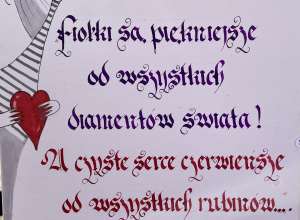 Fiołki są piękniejsze
od wszystkich
diamentów świata!
A czyste serce czerwieńsze
od wszystkich rubinów...".